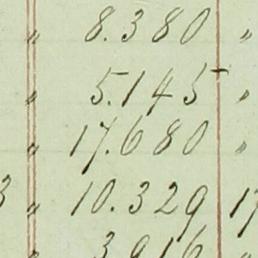 " 8.380 "
" 5.145 "
" 17.680 "
3 " 10.329 17
" 3916 "